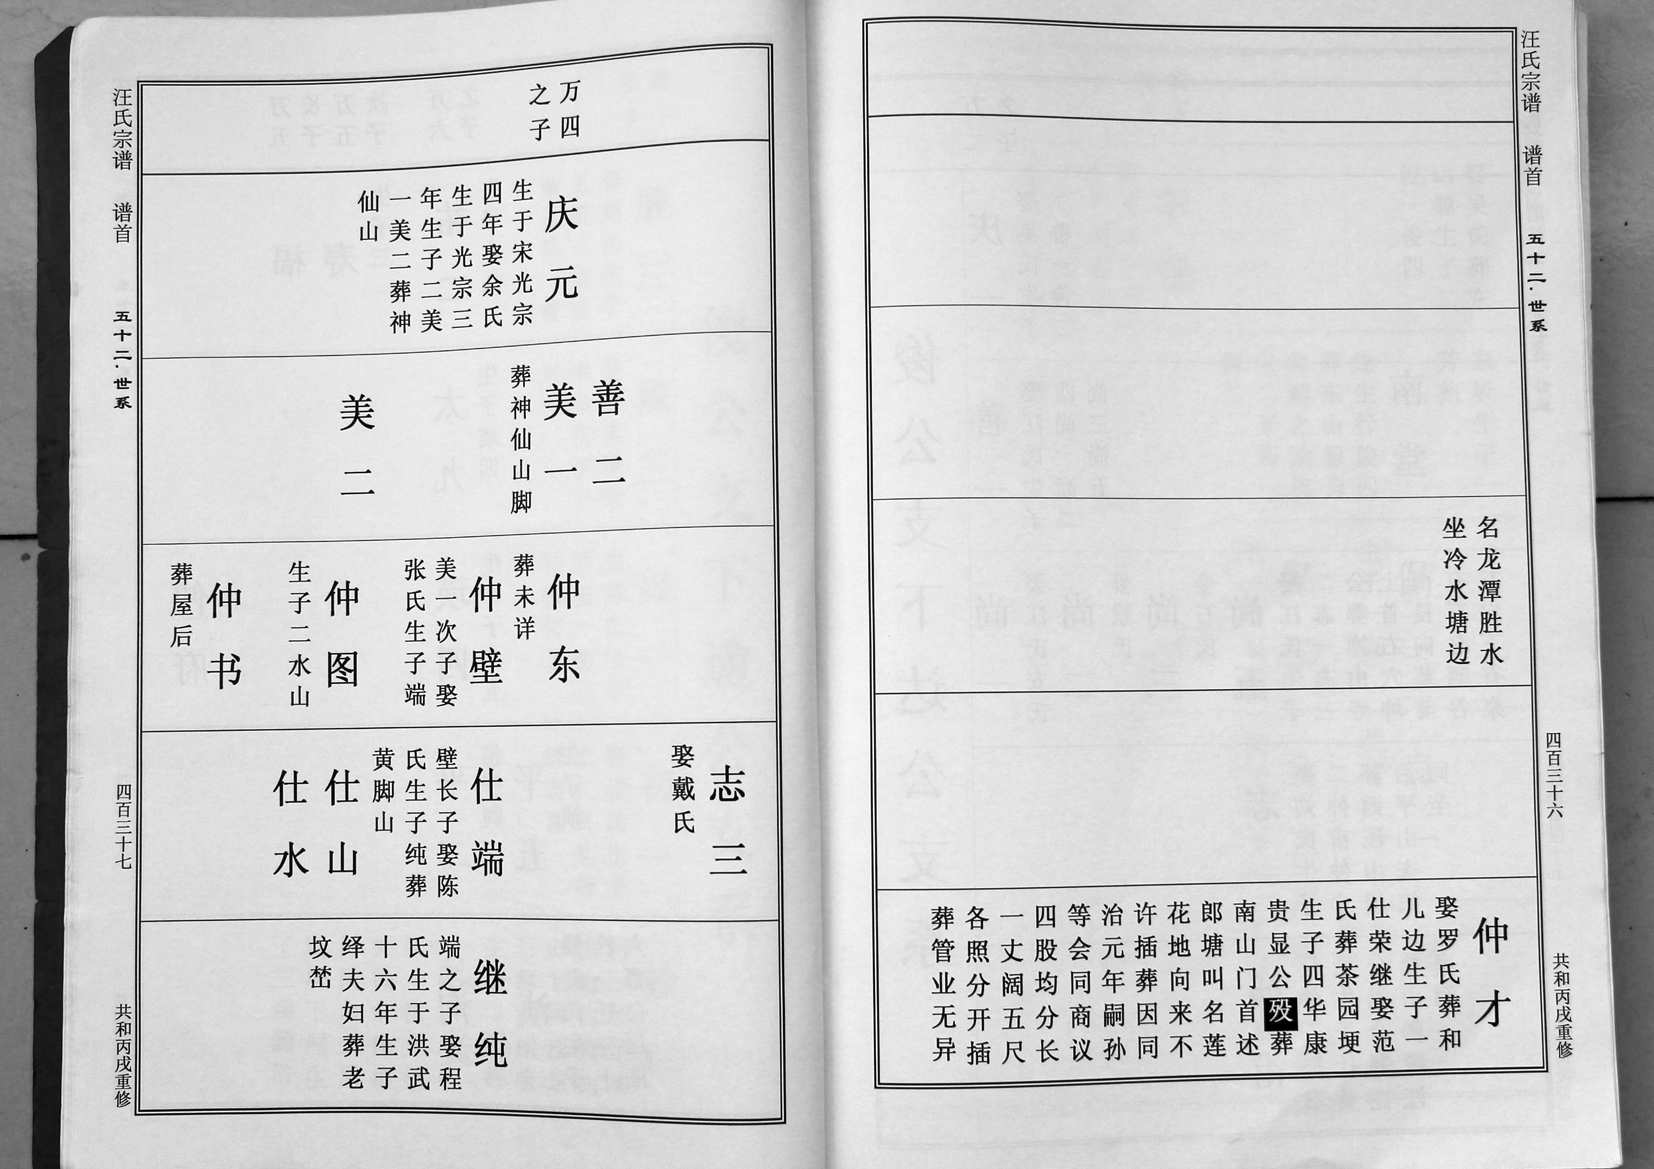 汪氏宗谱 谱首 五十二·世系 四百三十六 共和丙戌重修
名龙潭胜水
坐冷水塘边
仲才
娶罗氏葬和
儿边生子一
仕荣继娶范
氏葬茶园埂
生子四华康
贵显公殁葬
南山门首述
郎塘叫名莲
花地向来不
许插葬因同
治元年嗣孙
等会同商议
四股均分长
一丈阔五尺
各照分开插
葬管业无异
万四
之子
庆元
生于宋光宗
四年娶余氏
生于光宗三
年生子二美
一美二葬神
仙山
善二
美一
葬神仙山脚
美二
仲东
葬未详
仲壁
美一次子娶
张氏生子端
仲图
生子二水山
仲书
葬屋后
志三
娶戴氏
仕端
壁长子娶陈
氏生子纯葬
黄脚山
仕山
仕水
继纯
端之子娶程
氏生于洪武
十六年生子
绎夫妇葬老
坟茔
汪氏宗谱 谱首 五十二·世系 四百三十七 共和丙戌重修